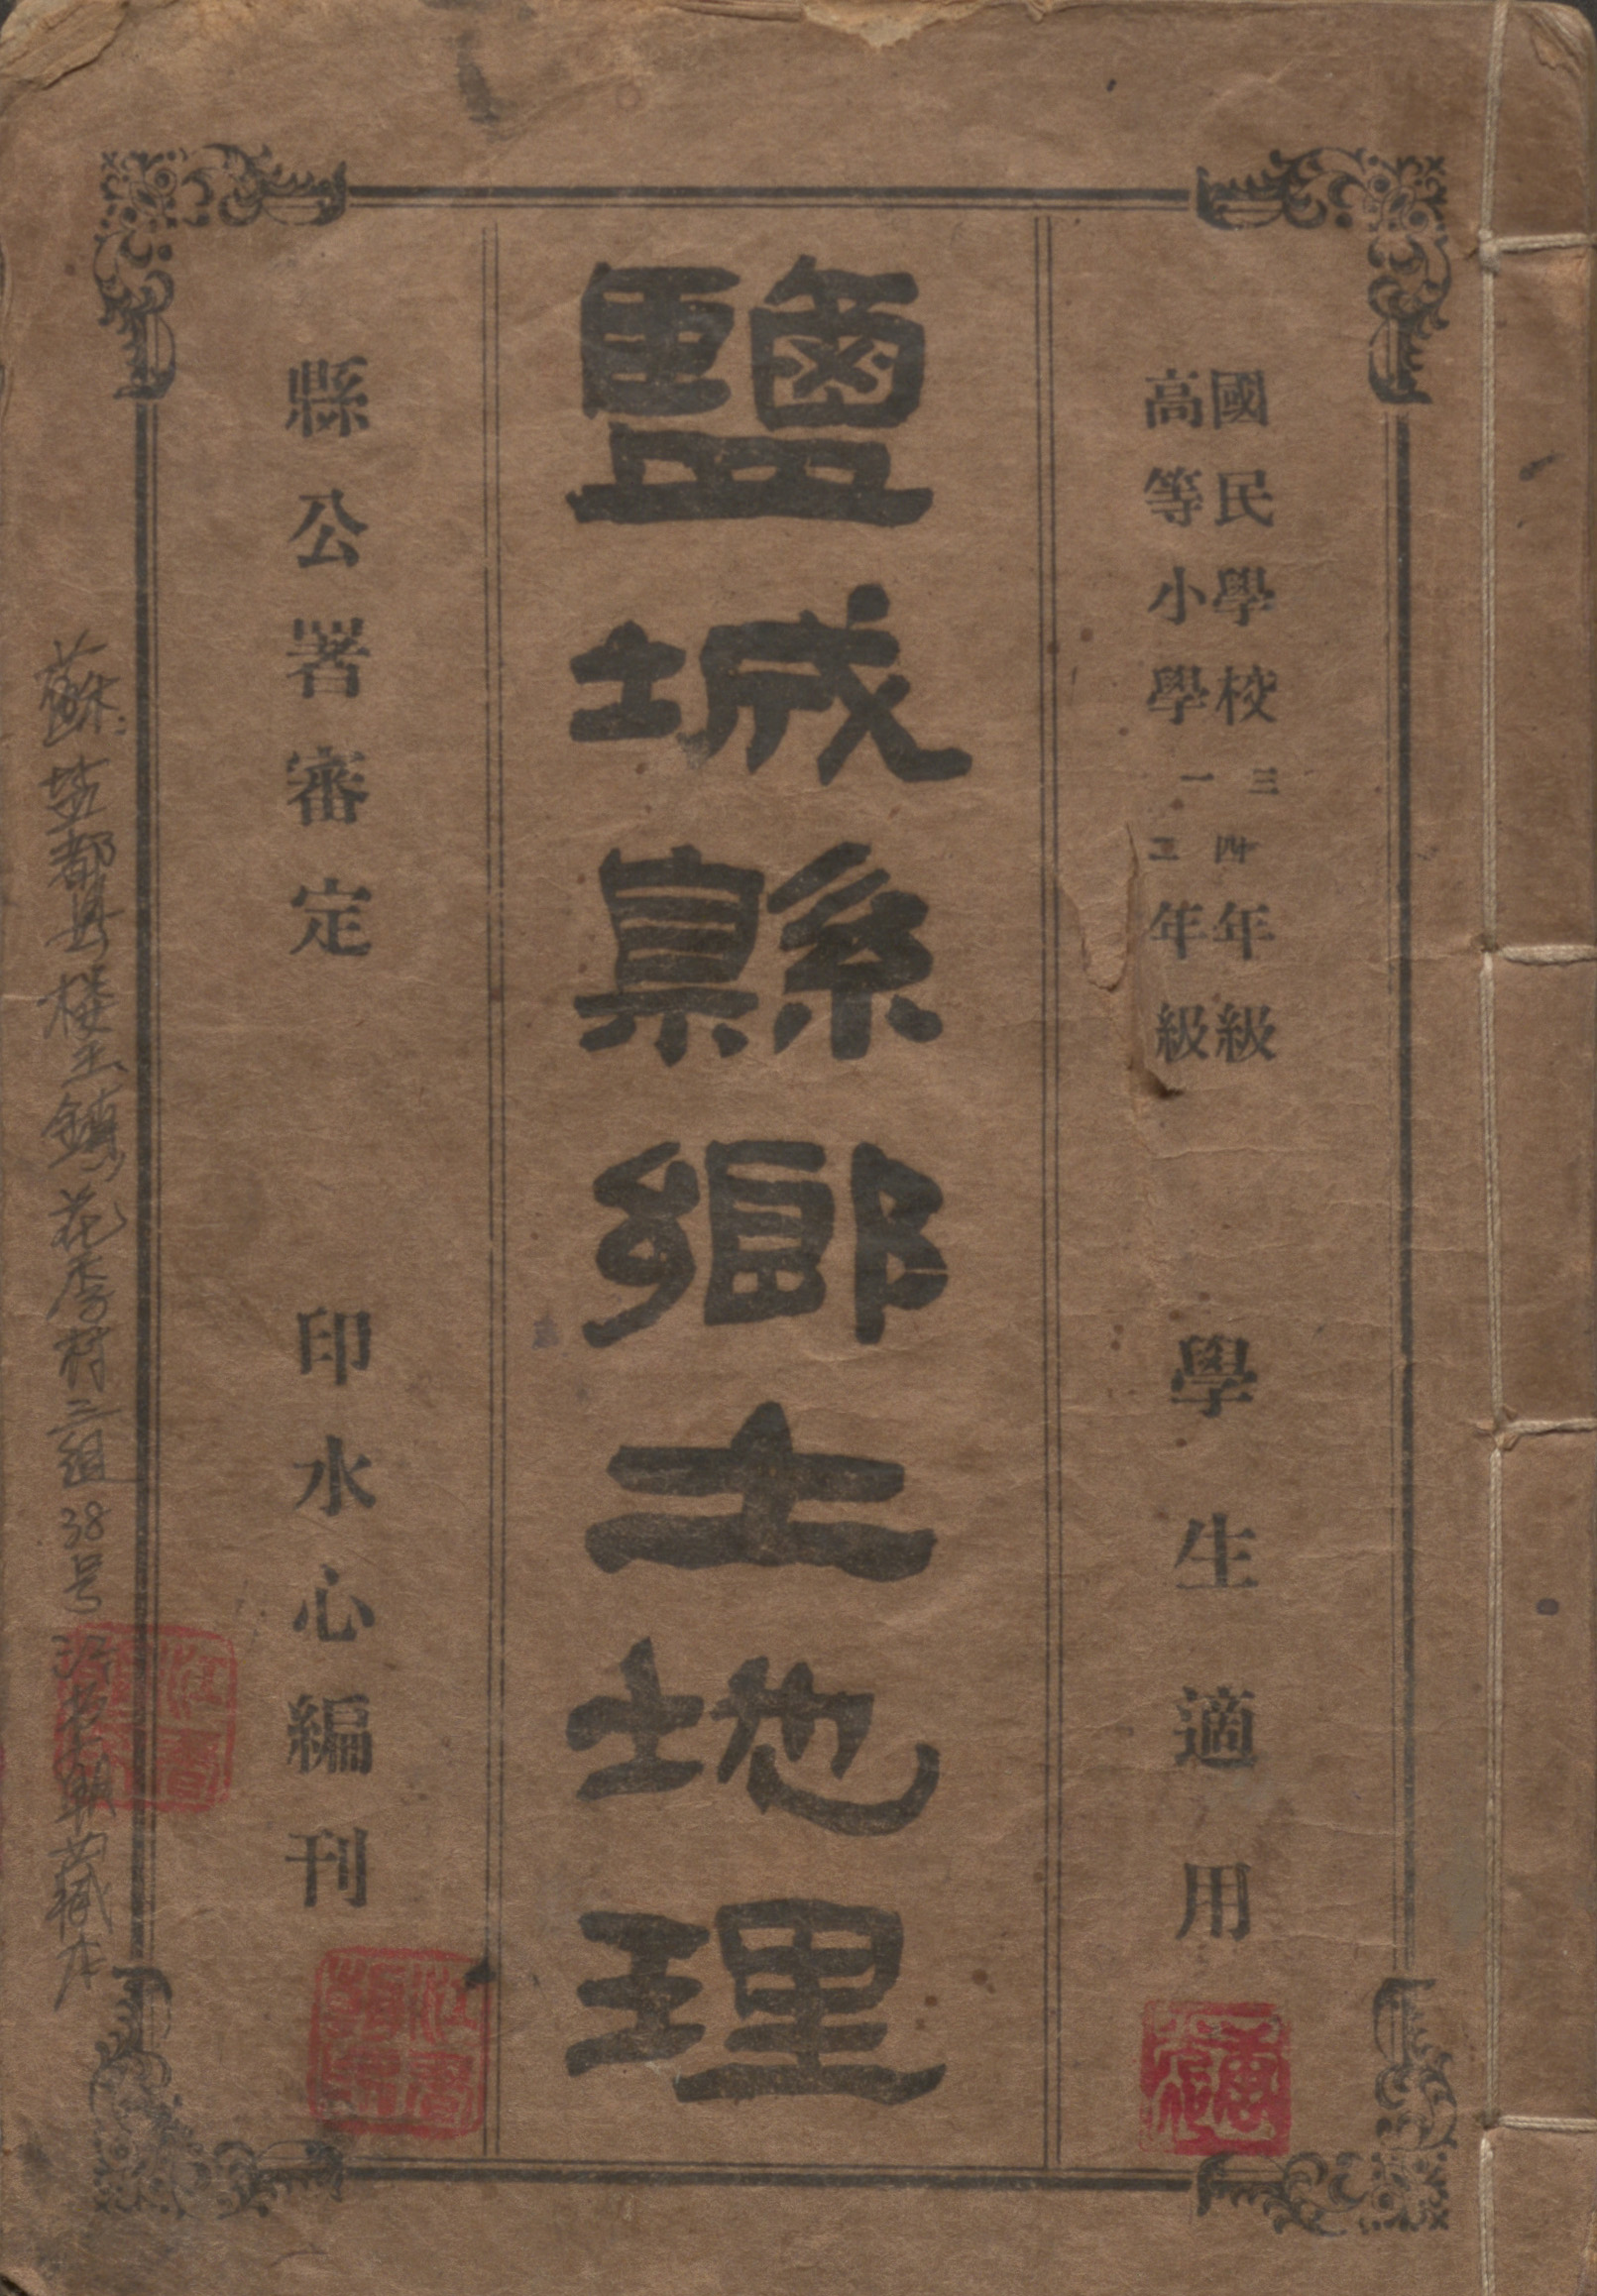 國民學校三四年級
高等小學一二年級
學生適用
鹽城縣鄉土地理
縣公署審定
印水心編刊
蘇 盐都县楼王鎮 花李村三组38号 藏本